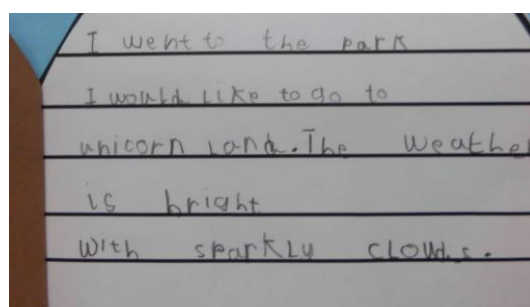 I went to the park
I would like to go to
unicorn land. The weather
is bright
with sparkly clouds.